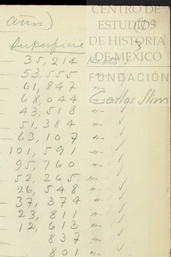 años)
CENTRO DE
ESTUDIOS
DE HISTORIA
DE MÉXICO
FUNDACIÓN
Carlos Slim
Superfine
35,214
53,555
61,847
68,044
43,518
51,384
63,107
101,591
95,760
52,265
26,548
37,374
23,811
12,613
837
801